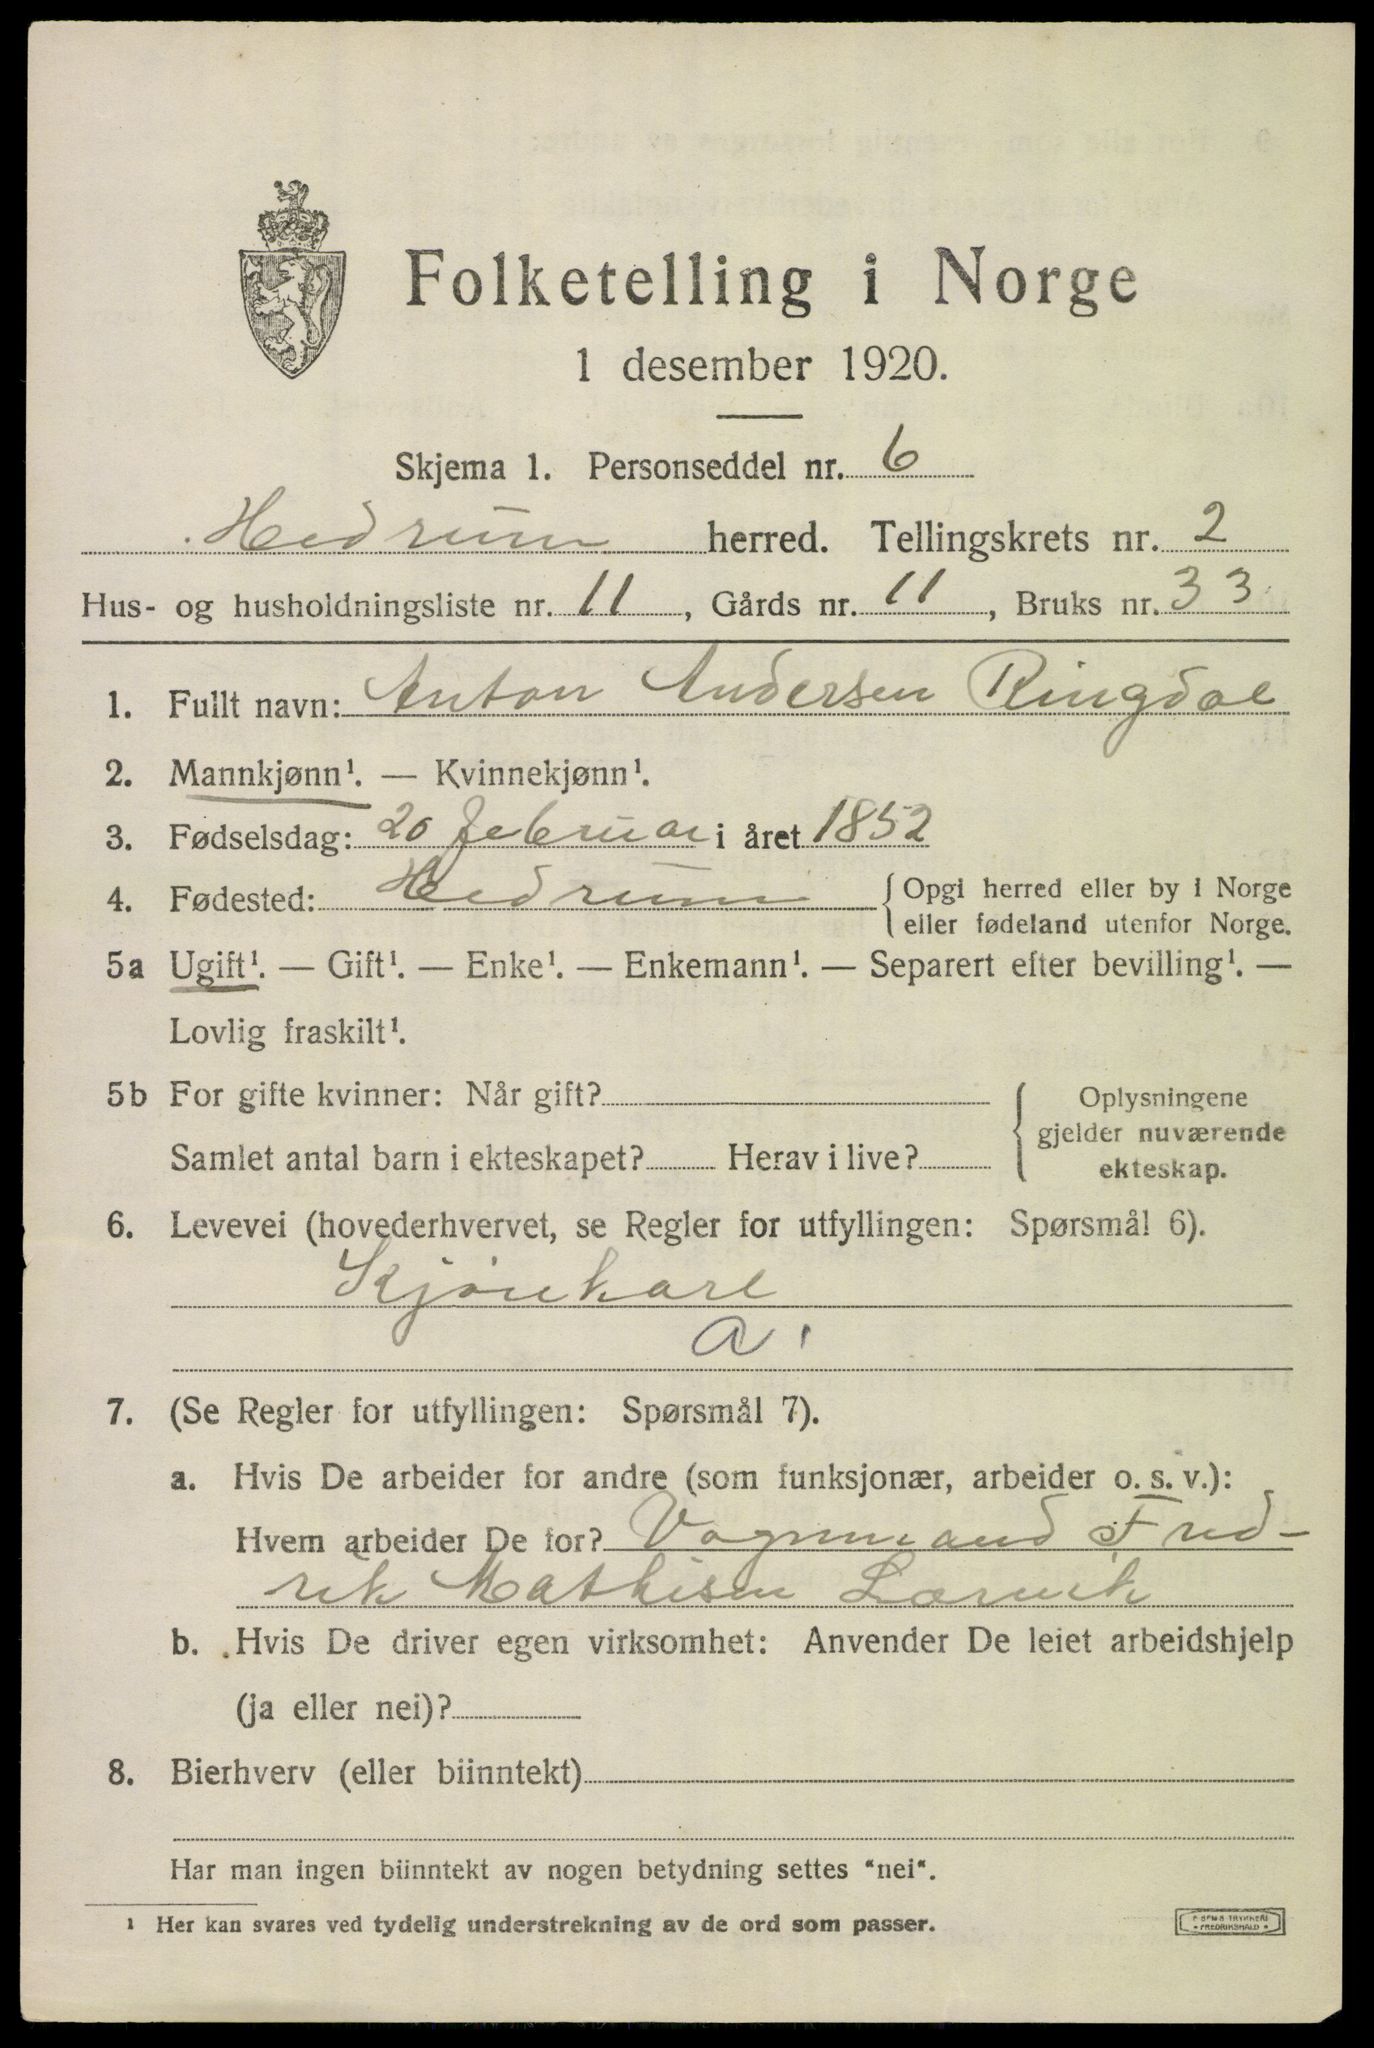 Folketelling i Norge
1 desember 1920.
Skjema 1. Personseddel nr. 6
Hedrum herred. Tellingskrets nr. 2
Hus- og husholdningsliste nr. 11, Gårds nr. 11, Bruks nr. 33
1. Fullt navn: Anton Andersen Ringdal
2. Mannkjønn¹. — Kvinnekjønn¹.
3. Fødselsdag: 20 februar i året 1852
4. Fødested: Hedrum { Opgi herred eller by i Norge
eller fødeland utenfor Norge.
5a Ugift¹. — Gift¹. — Enke¹. — Enkemann¹. — Separert efter bevilling¹. —
Lovlig fraskilt¹.
5b For gifte kvinner: Når gift? { Oplysningene
gjelder nuværende
Samlet antal barn i ekteskapet? Herav i live?
ekteskap.
6. Levevei (hovederhvervet, se Regler for utfyllingen: Spørsmål 6).
Kjørekarl
a 1
7. (Se Regler for utfyllingen: Spørsmål 7).
a. Hvis De arbeider for andre (som funksjonær, arbeider o. s. v.):
Hvem arbeider De for? Vognmand Fred-
rik Mathisen Larvik
b. Hvis De driver egen virksomhet: Anvender De leiet arbeidshjelp
(ja eller nei)?
8. Bierhverv (eller biinntekt)
Har man ingen biinntekt av nogen betydning settes "nei".
¹ Her kan svares ved tydelig understrekning av de ord som passer.
TRYKKERI
FREDRIKSHALD